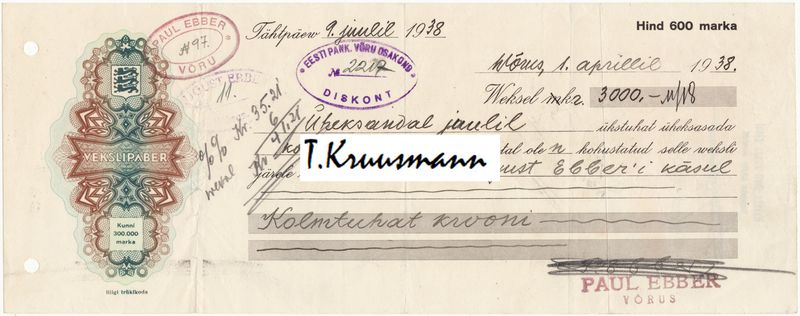 PAUL EBBER
№ 97.
VÕRU
Tähtpäew 9. juulil 1938
Hind 600 marka
EESTI PANK. VÕRU OSAKOND
№ 2217
DISKONT
Võrus, 1. aprillil 1938.
Weksel mkr. 3000,-
11.
Kr. 35.21
6
Üheksandal juulil ükstuhat üheksasada
T.Kruusmann
tal ole n kohustatud selle weksli
järele
Ebber'i käsul
VEKSLIPABER
Kolmtuhat krooni
Kunni
300.000
marka
Riigi trükikoda
PAUL EBBER
VÕRUS